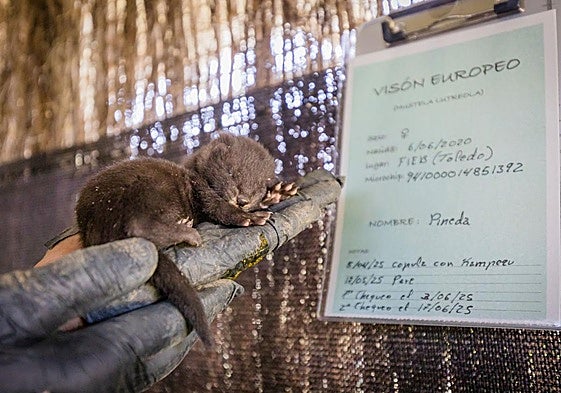 VISÓN EUROPEO
(MUSTELA LUTREOLA)
Sexo: ♀
Nacida: 6/06/2020
Lugar: FIEB (Toledo)
Microchip: 941000014851392
NOMBRE: Pineda
NOTAS
8/Abr/25 copula con Kamperu
12/05/25 Pare
1º Chequeo el 2/06/25
2º Chequeo el 17/06/25